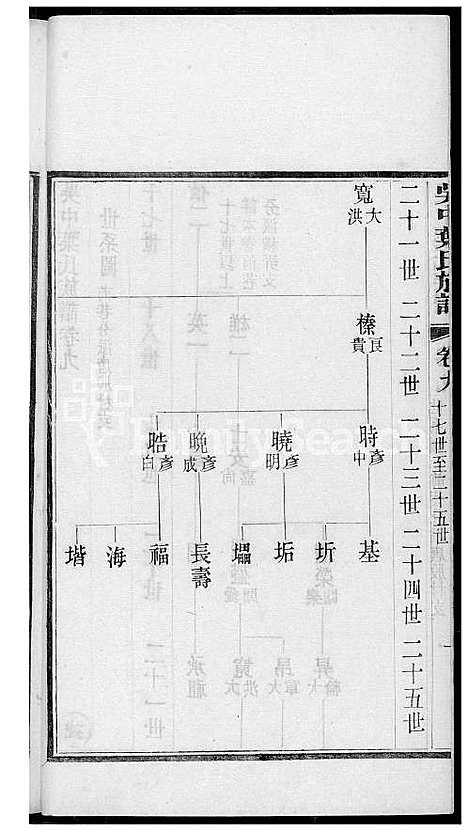 吳中葉氏族譜 卷九 十七世至二十五世 一
二十一世 二十二世 二十三世 二十四世 二十五世
寬 大洪
榛 良貴
時 彥中
曉 彥明
晚 彥成
晧 彥白
基
圻
垢
長壽
福
海
堦
FamilySearch